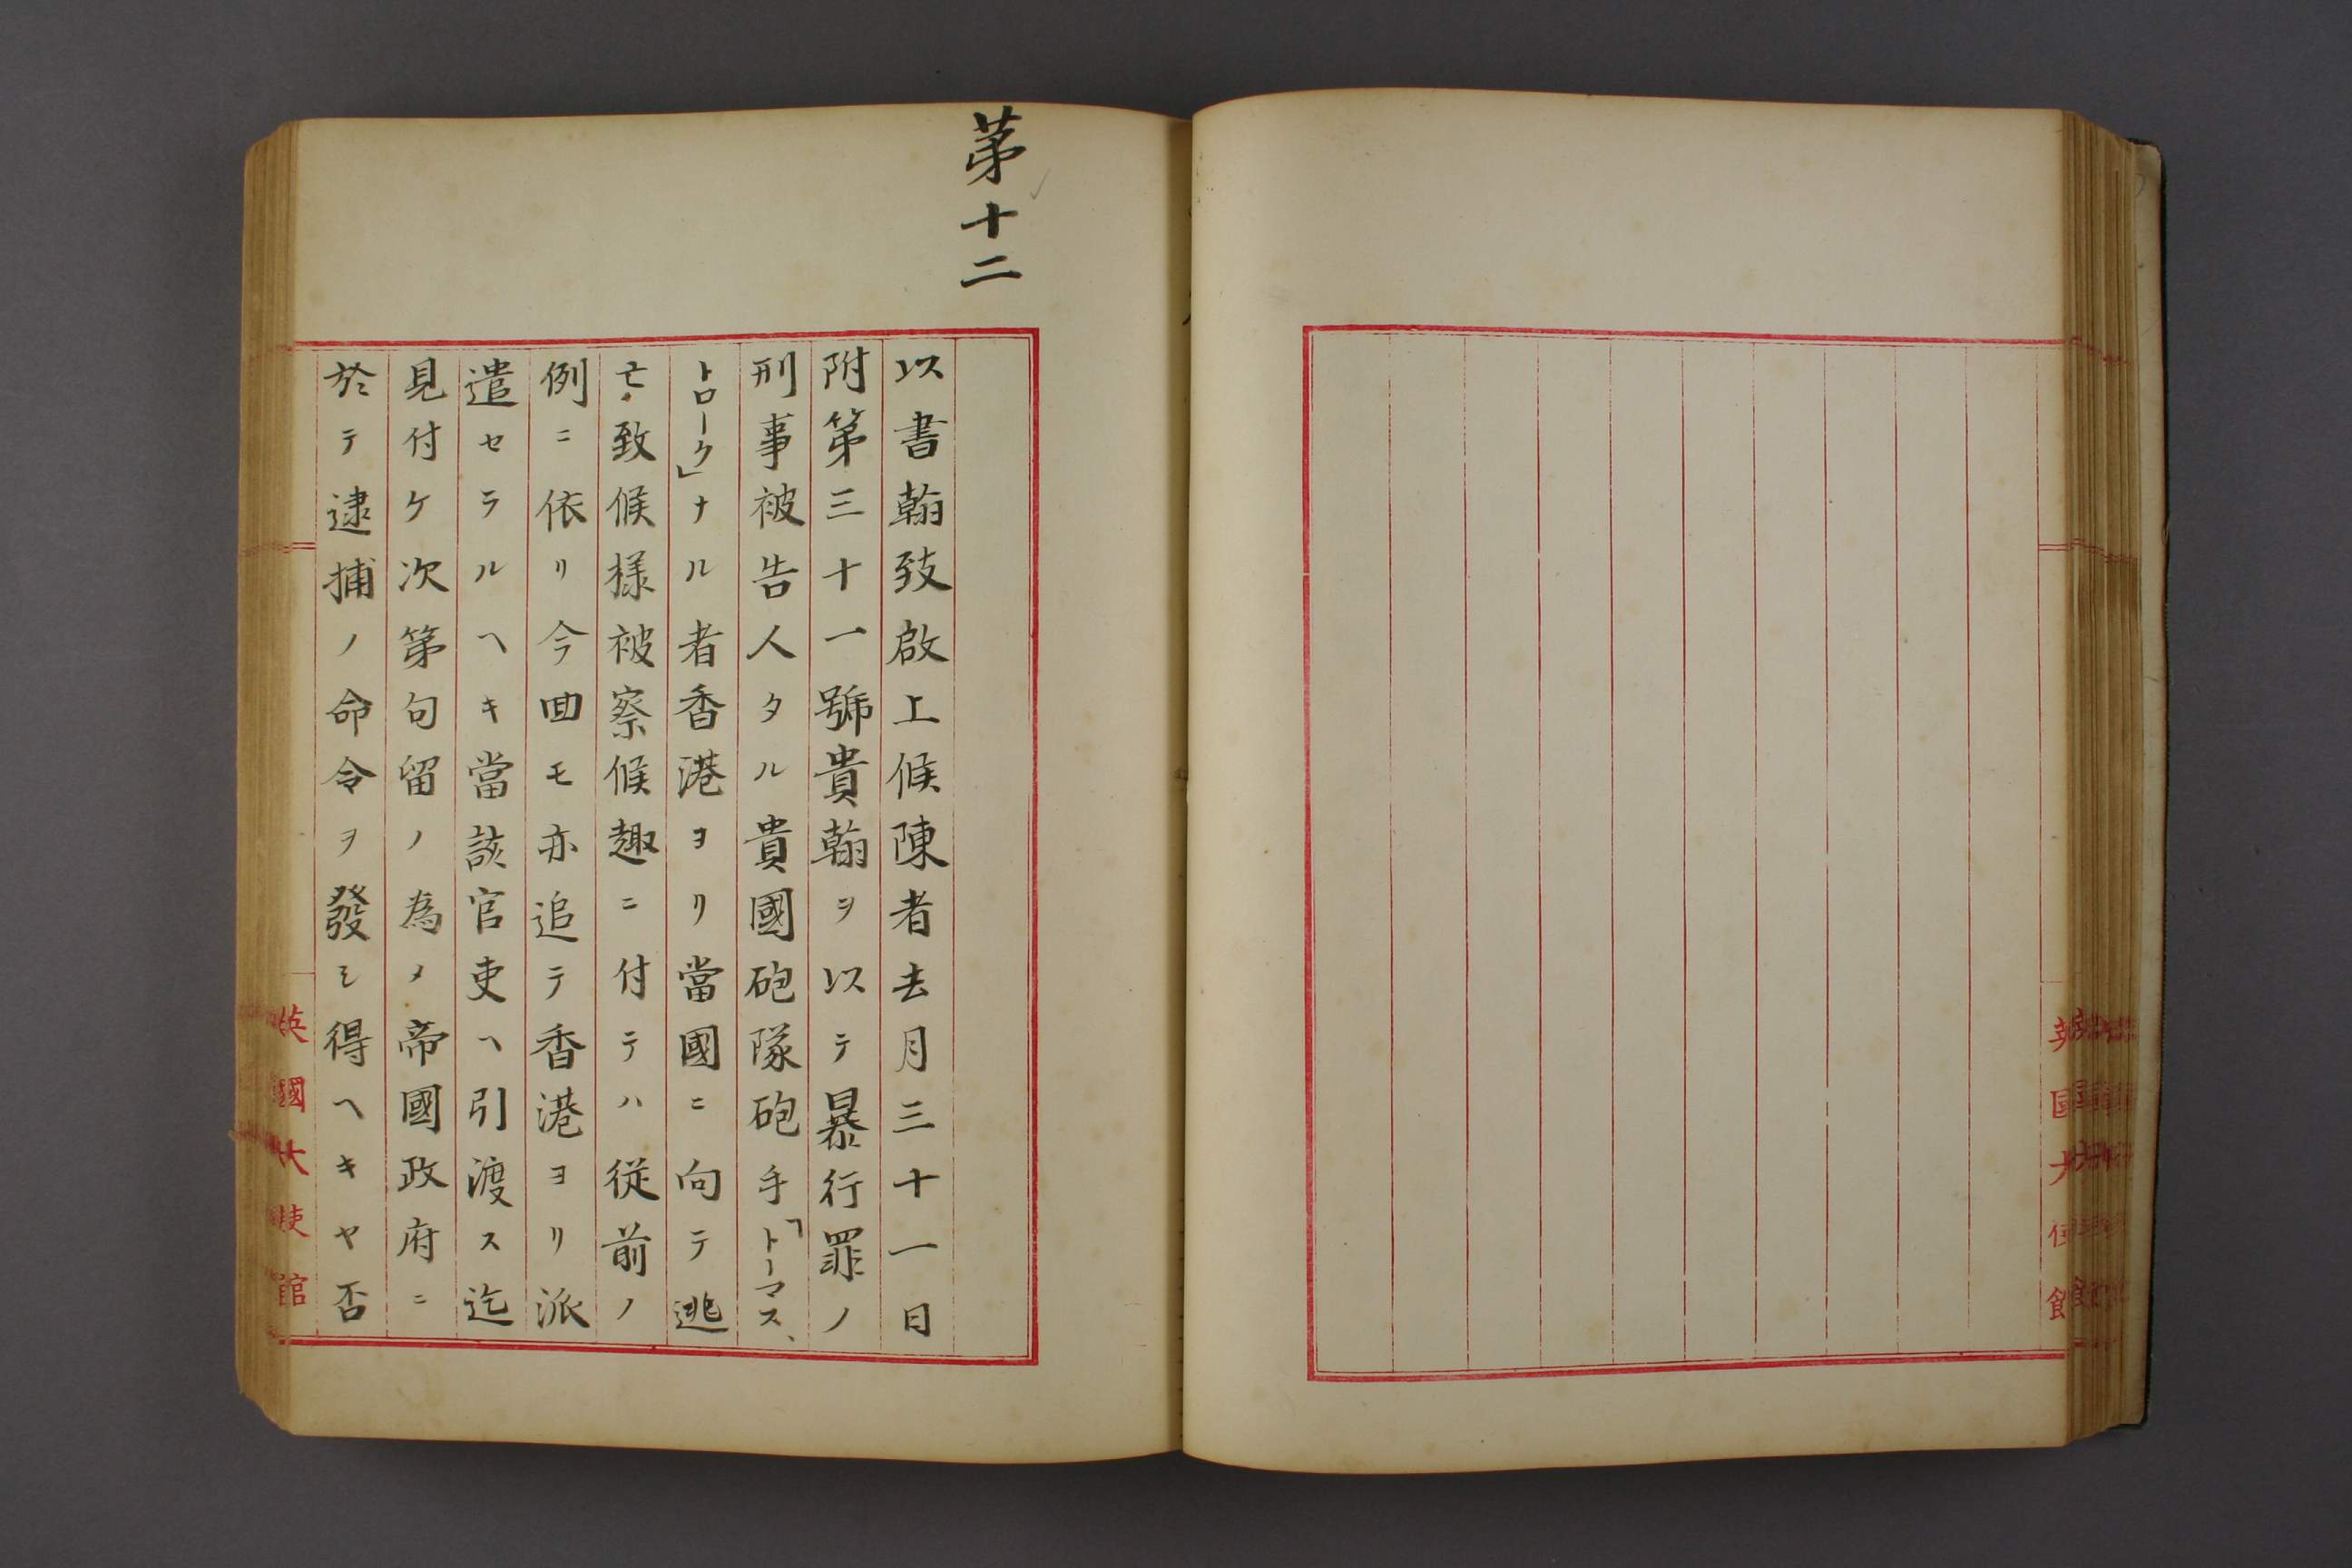 第十二
以書翰致啟上候陳者去月三十一日
附第三十一號貴翰ヲ以テ暴行罪ノ
刑事被告人タル貴國砲隊砲手「トーマス、
トローク」ナル者香港ヨリ當國ニ向テ逃
亡致候様被察候趣ニ付テハ従前ノ
例ニ依リ今回モ亦追テ香港ヨリ派
遣セラルヘキ當該官吏ヘ引渡ス迄
見付ケ次第句留ノ為メ帝國政府ニ
於テ逮捕ノ命令ヲ發シ得ヘキヤ否
英國大使館
英國大使館